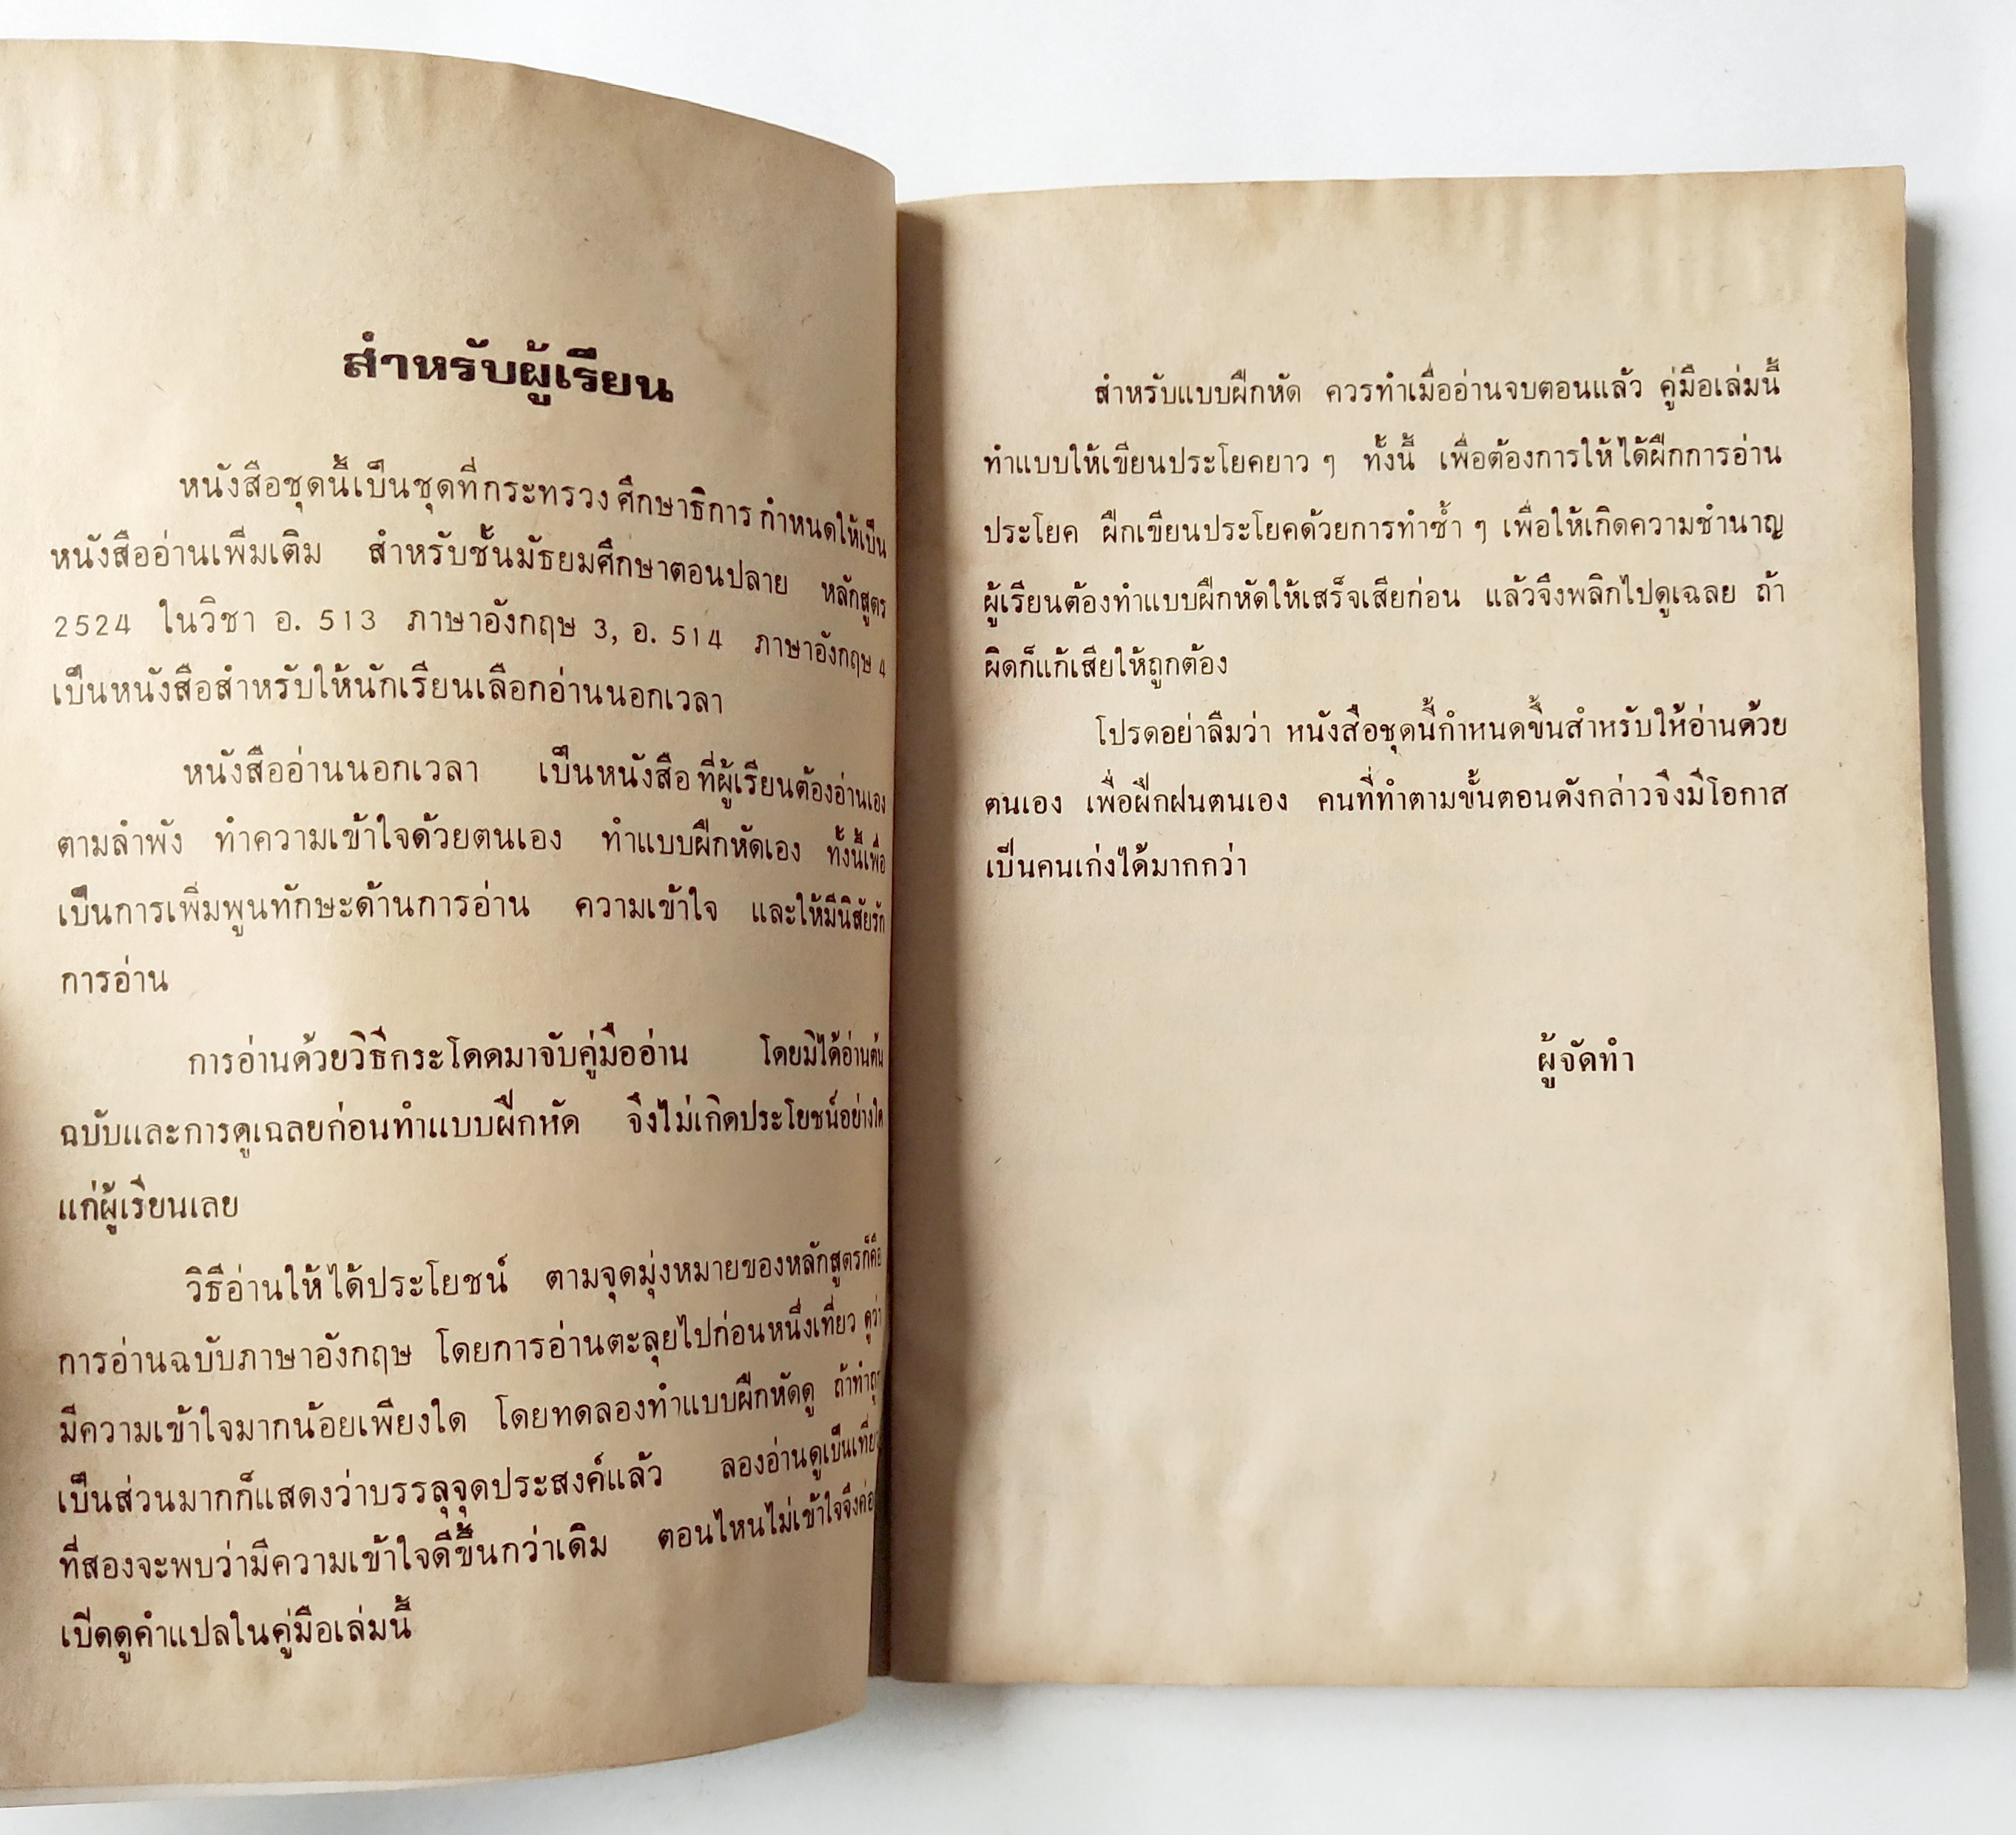 สำหรับผู้เรียน
หนังสือชุดนี้เป็นชุดที่กระทรวงศึกษาธิการ กำหนดให้เป็น
หนังสืออ่านเพิ่มเติม สำหรับชั้นมัธยมศึกษาตอนปลาย หลักสูตร
2524 ในวิชา อ. 513 ภาษาอังกฤษ 3, อ. 514 ภาษาอังกฤษ 4
เป็นหนังสือสำหรับให้นักเรียนเลือกอ่านนอกเวลา
หนังสืออ่านนอกเวลา เป็นหนังสือที่ผู้เรียนต้องอ่านเอง
ตามลำพัง ทำความเข้าใจด้วยตนเอง ทำแบบฝึกหัดเอง ทั้งนี้เพื่อ
เป็นการเพิ่มพูนทักษะด้านการอ่าน ความเข้าใจ และให้มีนิสัยรัก
การอ่าน
การอ่านด้วยวิธีกระโดดมาจับคู่มืออ่าน โดยมิได้อ่านต้น
ฉบับและการดูเฉลยก่อนทำแบบฝึกหัด จึงไม่เกิดประโยชน์อย่างใด
แก่ผู้เรียนเลย
วิธีอ่านให้ได้ประโยชน์ ตามจุดมุ่งหมายของหลักสูตรก็คือ
การอ่านฉบับภาษาอังกฤษ โดยการอ่านตะลุยไปก่อนหนึ่งเที่ยว ดูว่า
มีความเข้าใจมากน้อยเพียงใด โดยทดลองทำแบบฝึกหัดดู
เป็นส่วนมากก็แสดงว่าบรรลุจุดประสงค์แล้ว ลองอ่านดูเป็นเที่ยว
ที่สองจะพบว่ามีความเข้าใจดีขึ้นกว่าเดิม ตอนไหนไม่เข้าใจจึงค่อย
เปิดดูคำแปลในคู่มือเล่มนี้
สำหรับแบบฝึกหัด ควรทำเมื่ออ่านจบตอนแล้ว คู่มือเล่มนี้
ทำแบบให้เขียนประโยคยาว ๆ ทั้งนี้ เพื่อต้องการให้ได้ฝึกการอ่าน
ประโยค ฝึกเขียนประโยคด้วยการทำซ้ำ ๆ เพื่อให้เกิดความชำนาญ
ผู้เรียนต้องทำแบบฝึกหัดให้เสร็จเสียก่อน แล้วจึงพลิกไปดูเฉลย ถ้า
ผิดก็แก้เสียให้ถูกต้อง
โปรดอย่าลืมว่า หนังสือชุดนี้กำหนดขึ้นสำหรับให้อ่านด้วย
ตนเอง เพื่อฝึกฝนตนเอง คนที่ทำตามขั้นตอนดังกล่าวจึงมีโอกาส
เป็นคนเก่งได้มากกว่า
ผู้จัดทำ